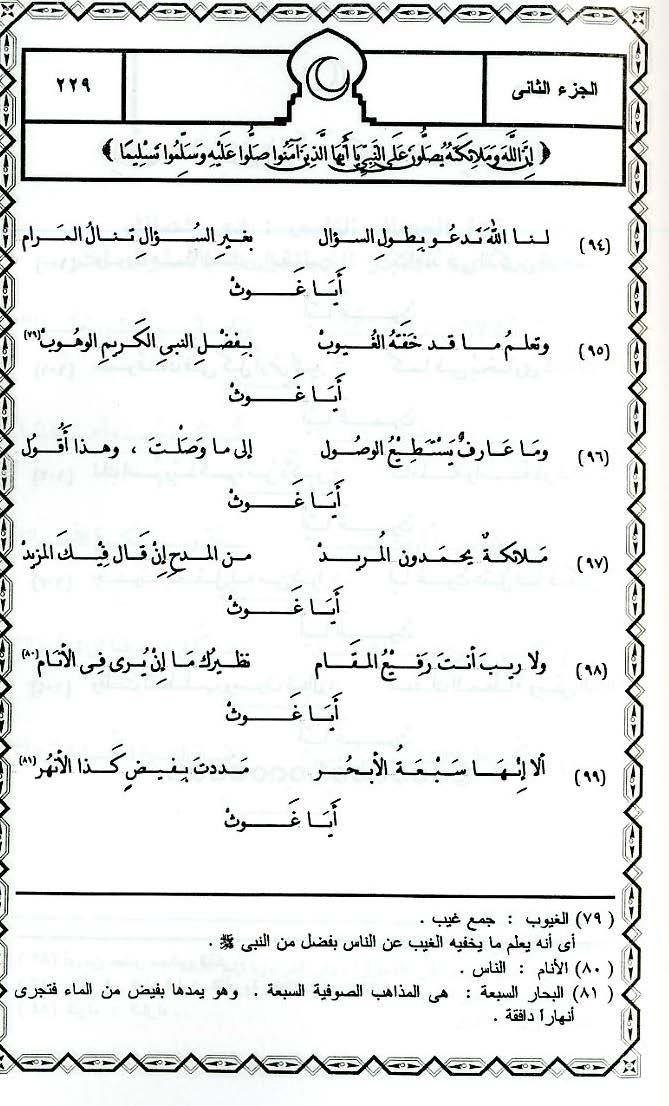 الجزء الثانى
٢٢٩
﴿ إِنَّ اللَّهَ وَمَلَائِكَتَهُ يُصَلُّونَ عَلَى النَّبِيِّ يَا أَيُّهَا الَّذِينَ آمَنُوا صَلُّوا عَلَيْهِ وَسَلِّمُوا تَسْلِيمًا ﴾
(٩٤) لنا اللهَ نَدعُو بِطولِ السؤال بغيرِ السُؤالِ تنالُ المَرام
أَيَا غَوثْ
(٩٥) وتعلمُ مَا قد خَفَتهُ الغُيوب بِفضْل النبى الكَريمِ الوهُوبْ(٧٩)
أَيَا غَوثْ
(٩٦) ومَا عَارفٌ يَسْتَطِيْعُ الوصُول إلى ما وَصَلْتَ ، وهذا أَقُول
أَيَا غَوثْ
(٩٧) مَلائكةٌ يحمَدون المُريدْ من المدح إنْ قَال فيْكَ المزيدْ
أَيَا غَوثْ
(٩٨) ولا ريبَ أنتَ رَفيْعُ المقَام نظيرُك مَا إنْ يُرى فِى الأنَام(٨٠)
أَيَا غَوثْ
(٩٩) ألا إنهَا سَبْعَةُ الأبحُر مَددتَ بِفيضٍ كَذا الأنهُر(٨١)
أَيَا غَوثْ
( ٧٩) الغيوب : جمع غيب .
أى أنه يعلم ما يخفيه الغيب عن الناس بفضل من النبى ﷺ .
( ٨٠) الأنام : الناس .
( ٨١) البحار السبعة : هى المذاهب الصوفية السبعة . وهو يمدها بفيض من الماء فتجرى
أنهاراً دافقة .